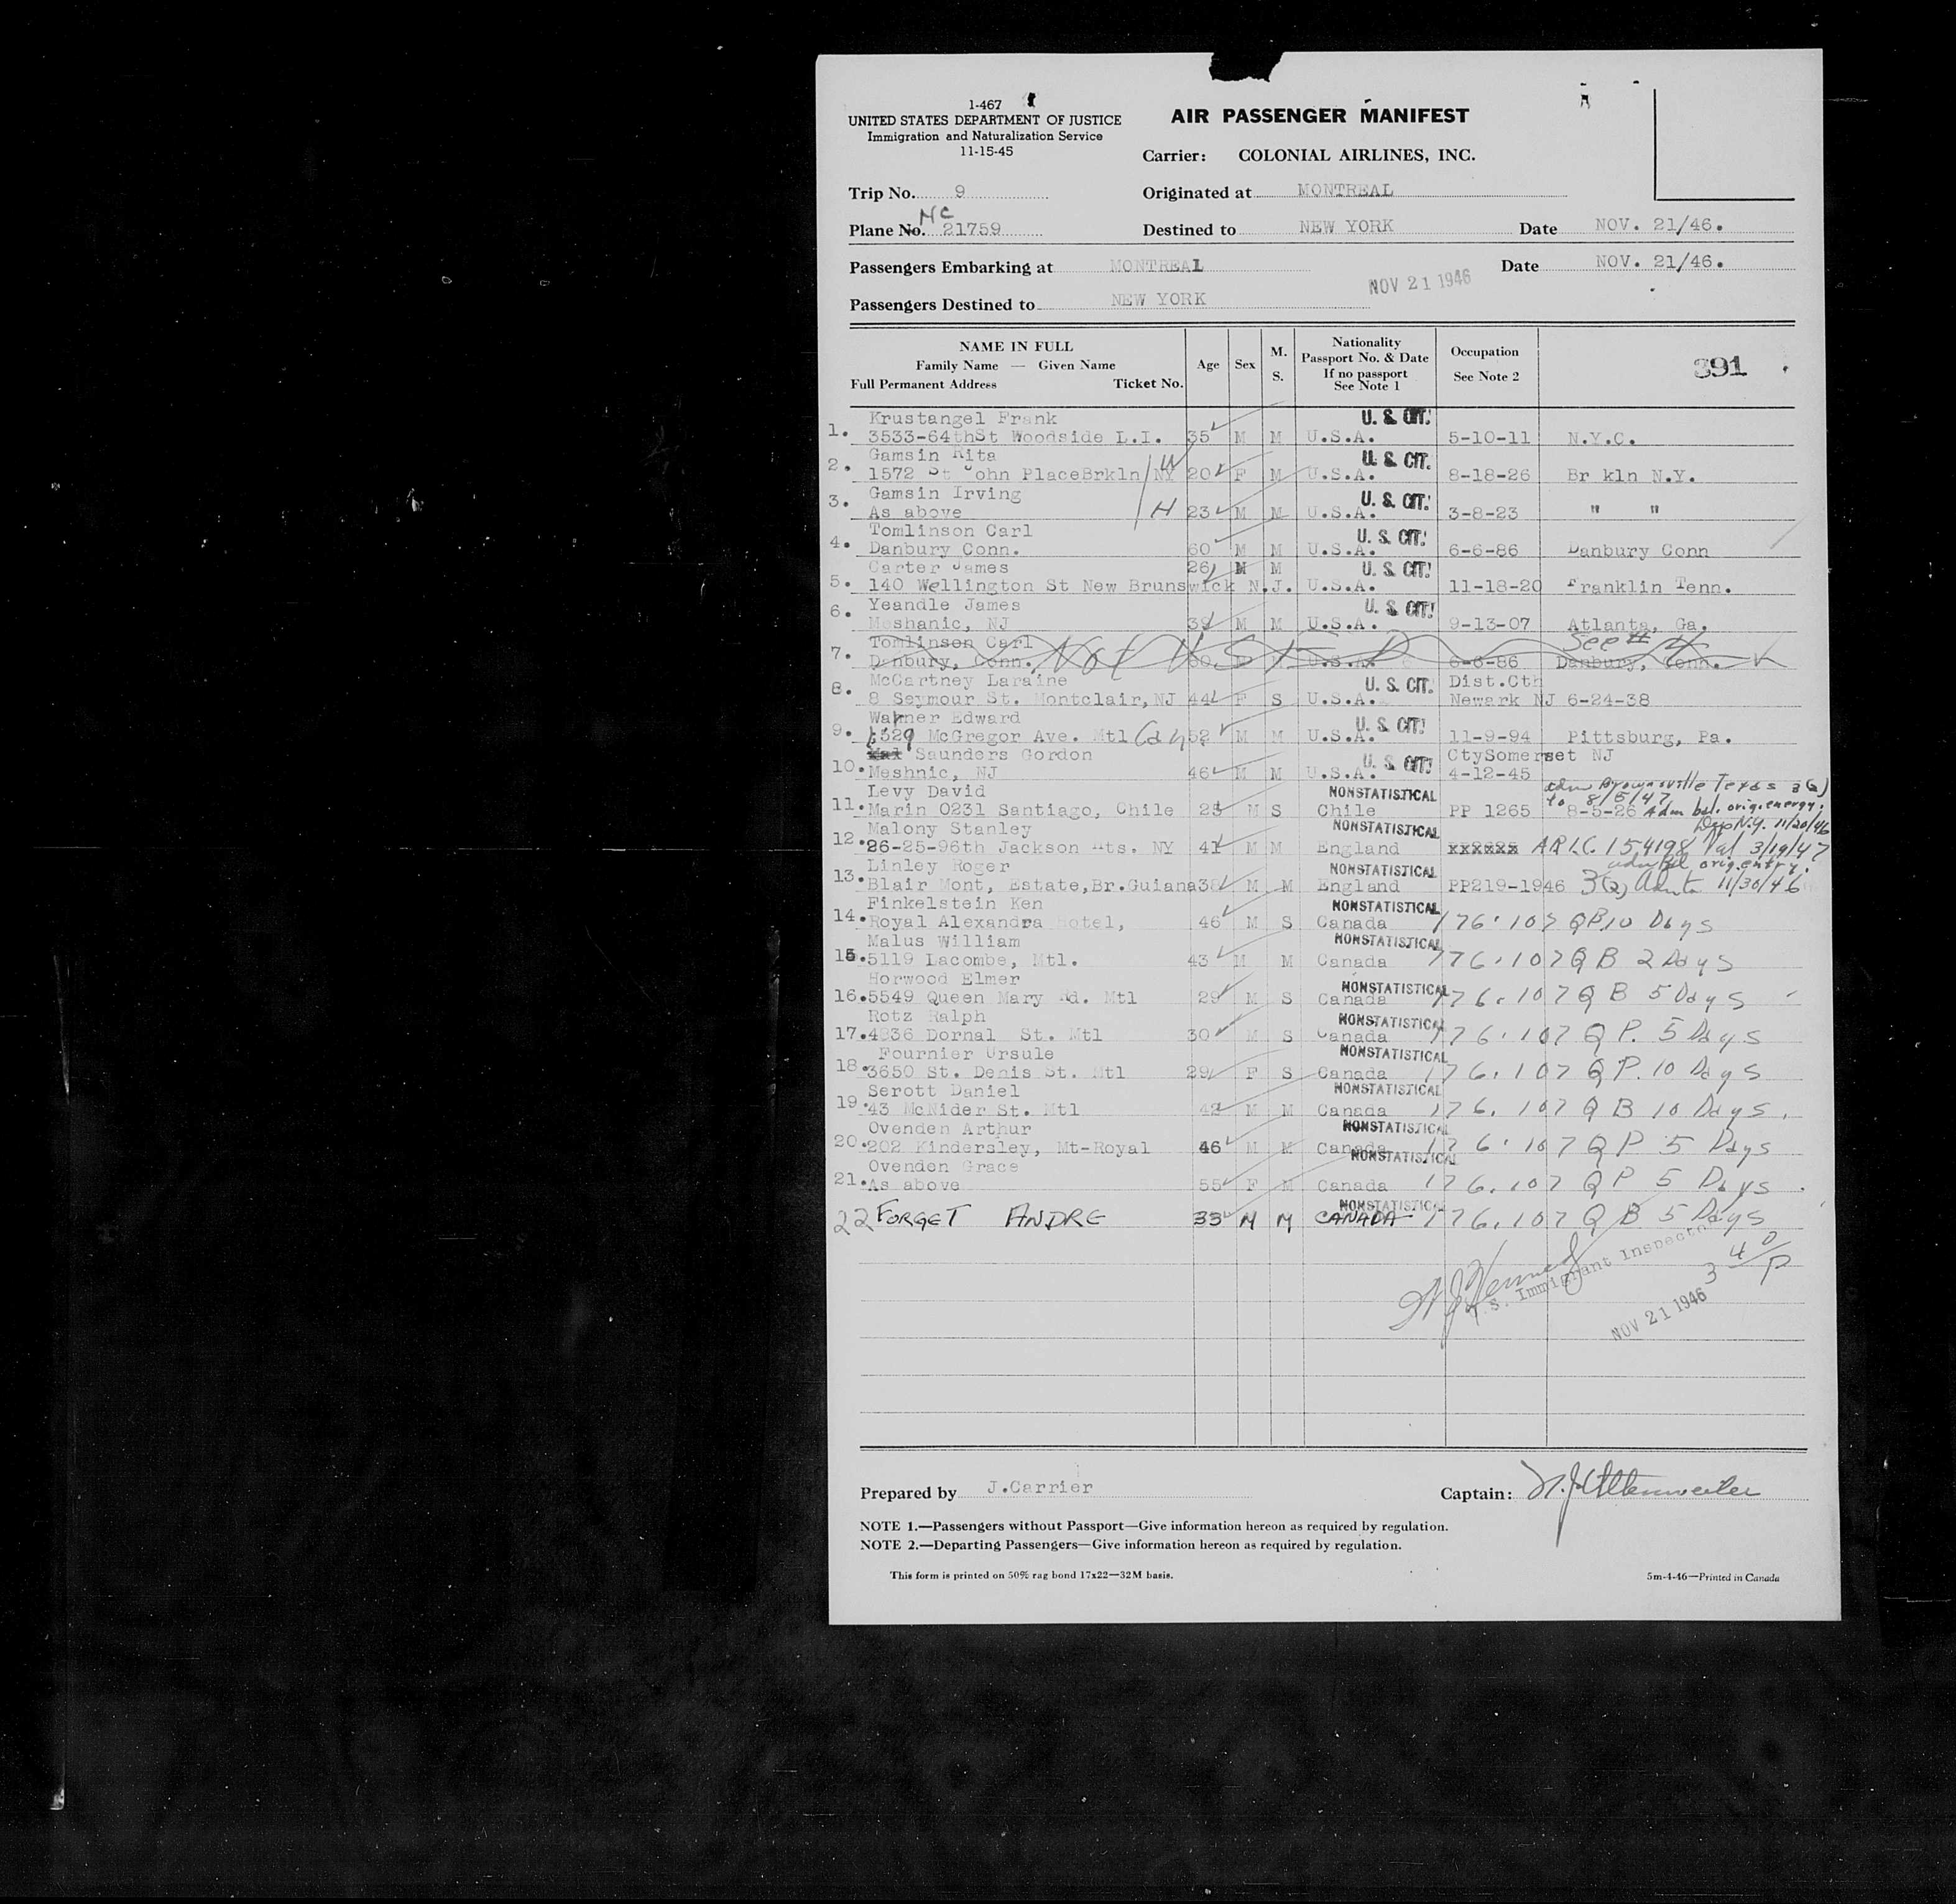 1-467
UNITED STATES DEPARTMENT OF JUSTICE
Immigration and Naturalization Service
11-15-45
AIR PASSENGER MANIFEST
Carrier: COLONIAL AIRLINES, INC.
Trip No. 9 Originated at MONTREAL
NC
Plane No. 21759 Destined to NEW YORK Date NOV. 21/46.
Passengers Embarking at MONTREAL Date NOV. 21/46.
NOV 21 1946
Passengers Destined to NEW YORK
NAME IN FULL
Family Name — Given Name
Full Permanent Address Ticket No.
Age Sex M. S.
Nationality
Passport No. & Date
If no passport
See Note 1
Occupation
See Note 2
391
Krustangel Frank U. S. CIT.
1. 3533-64thSt Woodside L.I. 35 M M U.S.A. 5-10-11 N.Y.C.
Gamsin Rita U. S. CIT.
2. 1572 St John PlaceBrkln NY W 20 F M U.S.A. 8-18-26 Br kln N.Y.
Gamsin Irving U. S. CIT.
3. As above H 23 M M U.S.A. 3-8-23 " "
Tomlinson Carl U. S. CIT.
4. Danbury Conn. 60 M M U.S.A. 6-6-86 Danbury Conn
Carter James 26 M M U. S. CIT.
5. 140 Wellington St New Brunswick N.J. U.S.A. 11-18-20 Franklin Tenn.
Yeandle James U. S. CIT.
6. Meshanic, NJ 39 M M U.S.A. 9-13-07 Atlanta, Ga.
Tomlinson Carl See # 4
7. Danbury, Conn. Not USED 60 U.S.A. 6-6-86 Danbury, Conn.
McCartney Laraine U. S. CIT. Dist.Cth
8. 8 Seymour St. Montclair, NJ 44 F S U.S.A. Newark NJ 6-24-38
Warner Edward U. S. CIT.
9. 1529 McGregor Ave. Mtl Can 52 M M U.S.A. 11-9-94 Pittsburg, Pa.
Saunders Gordon U. S. CIT. CtySomerset NJ
10. Meshnic, NJ 46 M M U.S.A. 4-12-45
Levy David NONSTATISTICAL adm Brownsville Texas 3(2)
to 8/5/47
11. Marin 0231 Santiago, Chile M S Chile PP 1265 8-5-26 Adm bal. orig. energy.
Dep N.Y. 11/20/46
Malony Stanley NONSTATISTICAL
12. 86-25-96th Jackson Hts. NY 41 M M England xxxxxx ARLC. 154198 Val 3/19/47
Linley Roger NONSTATISTICAL adm Bal orig. entry.
13. Blair Mont, Estate,Br.Guiana 38 M M England PP219-1946 3(2) 11/30/46
Finkelstein Ken NONSTATISTICAL
14. Royal Alexandra Hotel, 46 M S Canada 176.107 QP, 10 Days
Malus William NONSTATISTICAL
15. 5119 Lacombe, Mtl. 43 M M Canada 176.107 QB 2 Days
Horwood Elmer NONSTATISTICAL
16. 5549 Queen Mary Rd. Mtl 29 M S Canada 176.107 QB 5 Days
Rotz Ralph NONSTATISTICAL
17. 4836 Dornal St. Mtl 30 M S Canada 176.107 QP. 5 Days
Fournier Ursule NONSTATISTICAL
18. 3650 St. Denis St. Mtl 29 F S Canada 176.107 QP. 10 Days
Serott Daniel NONSTATISTICAL
19. 43 McNider St. Mtl 42 M M Canada 176.107 QB 10 Days.
Ovenden Arthur NONSTATISTICAL
20. 202 Kindersley, Mt-Royal 46 M M Canada 176.107 QP 5 Days
Ovenden Grace NONSTATISTICAL
21. As above 55 F M Canada 176.107 QP 5 Days
NONSTATISTICAL
22 FORGET ANDRE 33 M M CANADA 176.107 QB 5 Days
U.S. Immigrant Inspector
3 40/P
NOV 21 1946
Prepared by J.Carrier Captain:
NOTE 1.—Passengers without Passport—Give information hereon as required by regulation.
NOTE 2.—Departing Passengers—Give information hereon as required by regulation.
This form is printed on 50% rag bond 17x22—32M basis. 5m-4-46—Printed in Canada